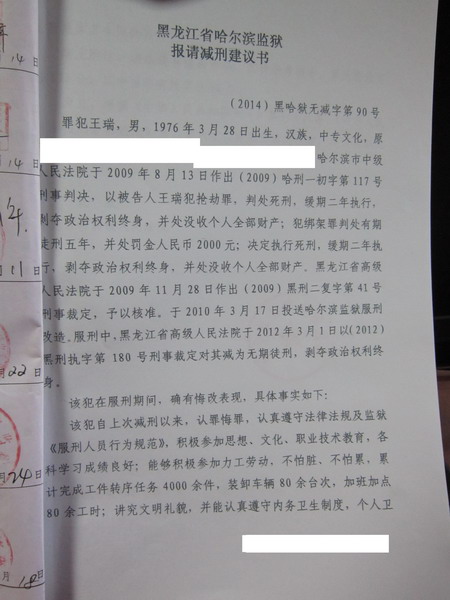 黑龙江省哈尔滨监狱
报请减刑建议书
（2014）黑哈狱无减字第 90 号
罪犯王瑞，男，1976 年 3 月 28 日出生，汉族，中专文化，原
哈尔滨市中级
人民法院于 2009 年 8 月 13 日作出（2009）哈刑一初字第 117 号
刑事判决，以被告人王瑞犯抢劫罪，判处死刑，缓期二年执行，
剥夺政治权利终身，并处没收个人全部财产；犯绑架罪判处有期
徒刑五年，并处罚金人民币 2000 元；决定执行死刑，缓期二年执
行，剥夺政治权利终身，并处没收个人全部财产。黑龙江省高级
人民法院于 2009 年 11 月 28 日作出（2009）黑刑二复字第 41 号
刑事裁定，予以核准。于 2010 年 3 月 17 日投送哈尔滨监狱服刑
改造。服刑中，黑龙江省高级人民法院于 2012 年 3 月 1 日以（2012）
黑刑执字第 180 号刑事裁定对其减为无期徒刑，剥夺政治权利终
身。
该犯在服刑期间，确有悔改表现，具体事实如下：
该犯自上次减刑以来，认罪悔罪，认真遵守法律法规及监狱
《服刑人员行为规范》，积极参加思想、文化、职业技术教育，各
科学习成绩良好；能够积极参加力工劳动，不怕脏、不怕累，累
计完成工件转序任务 4000 余件，装卸车辆 80 余台次，加班加点
80 余工时；讲究文明礼貌，并能认真遵守内务卫生制度，个人卫
14 日
14 日
年
月 11 日
月 22 日
月 24 日
月 18 日